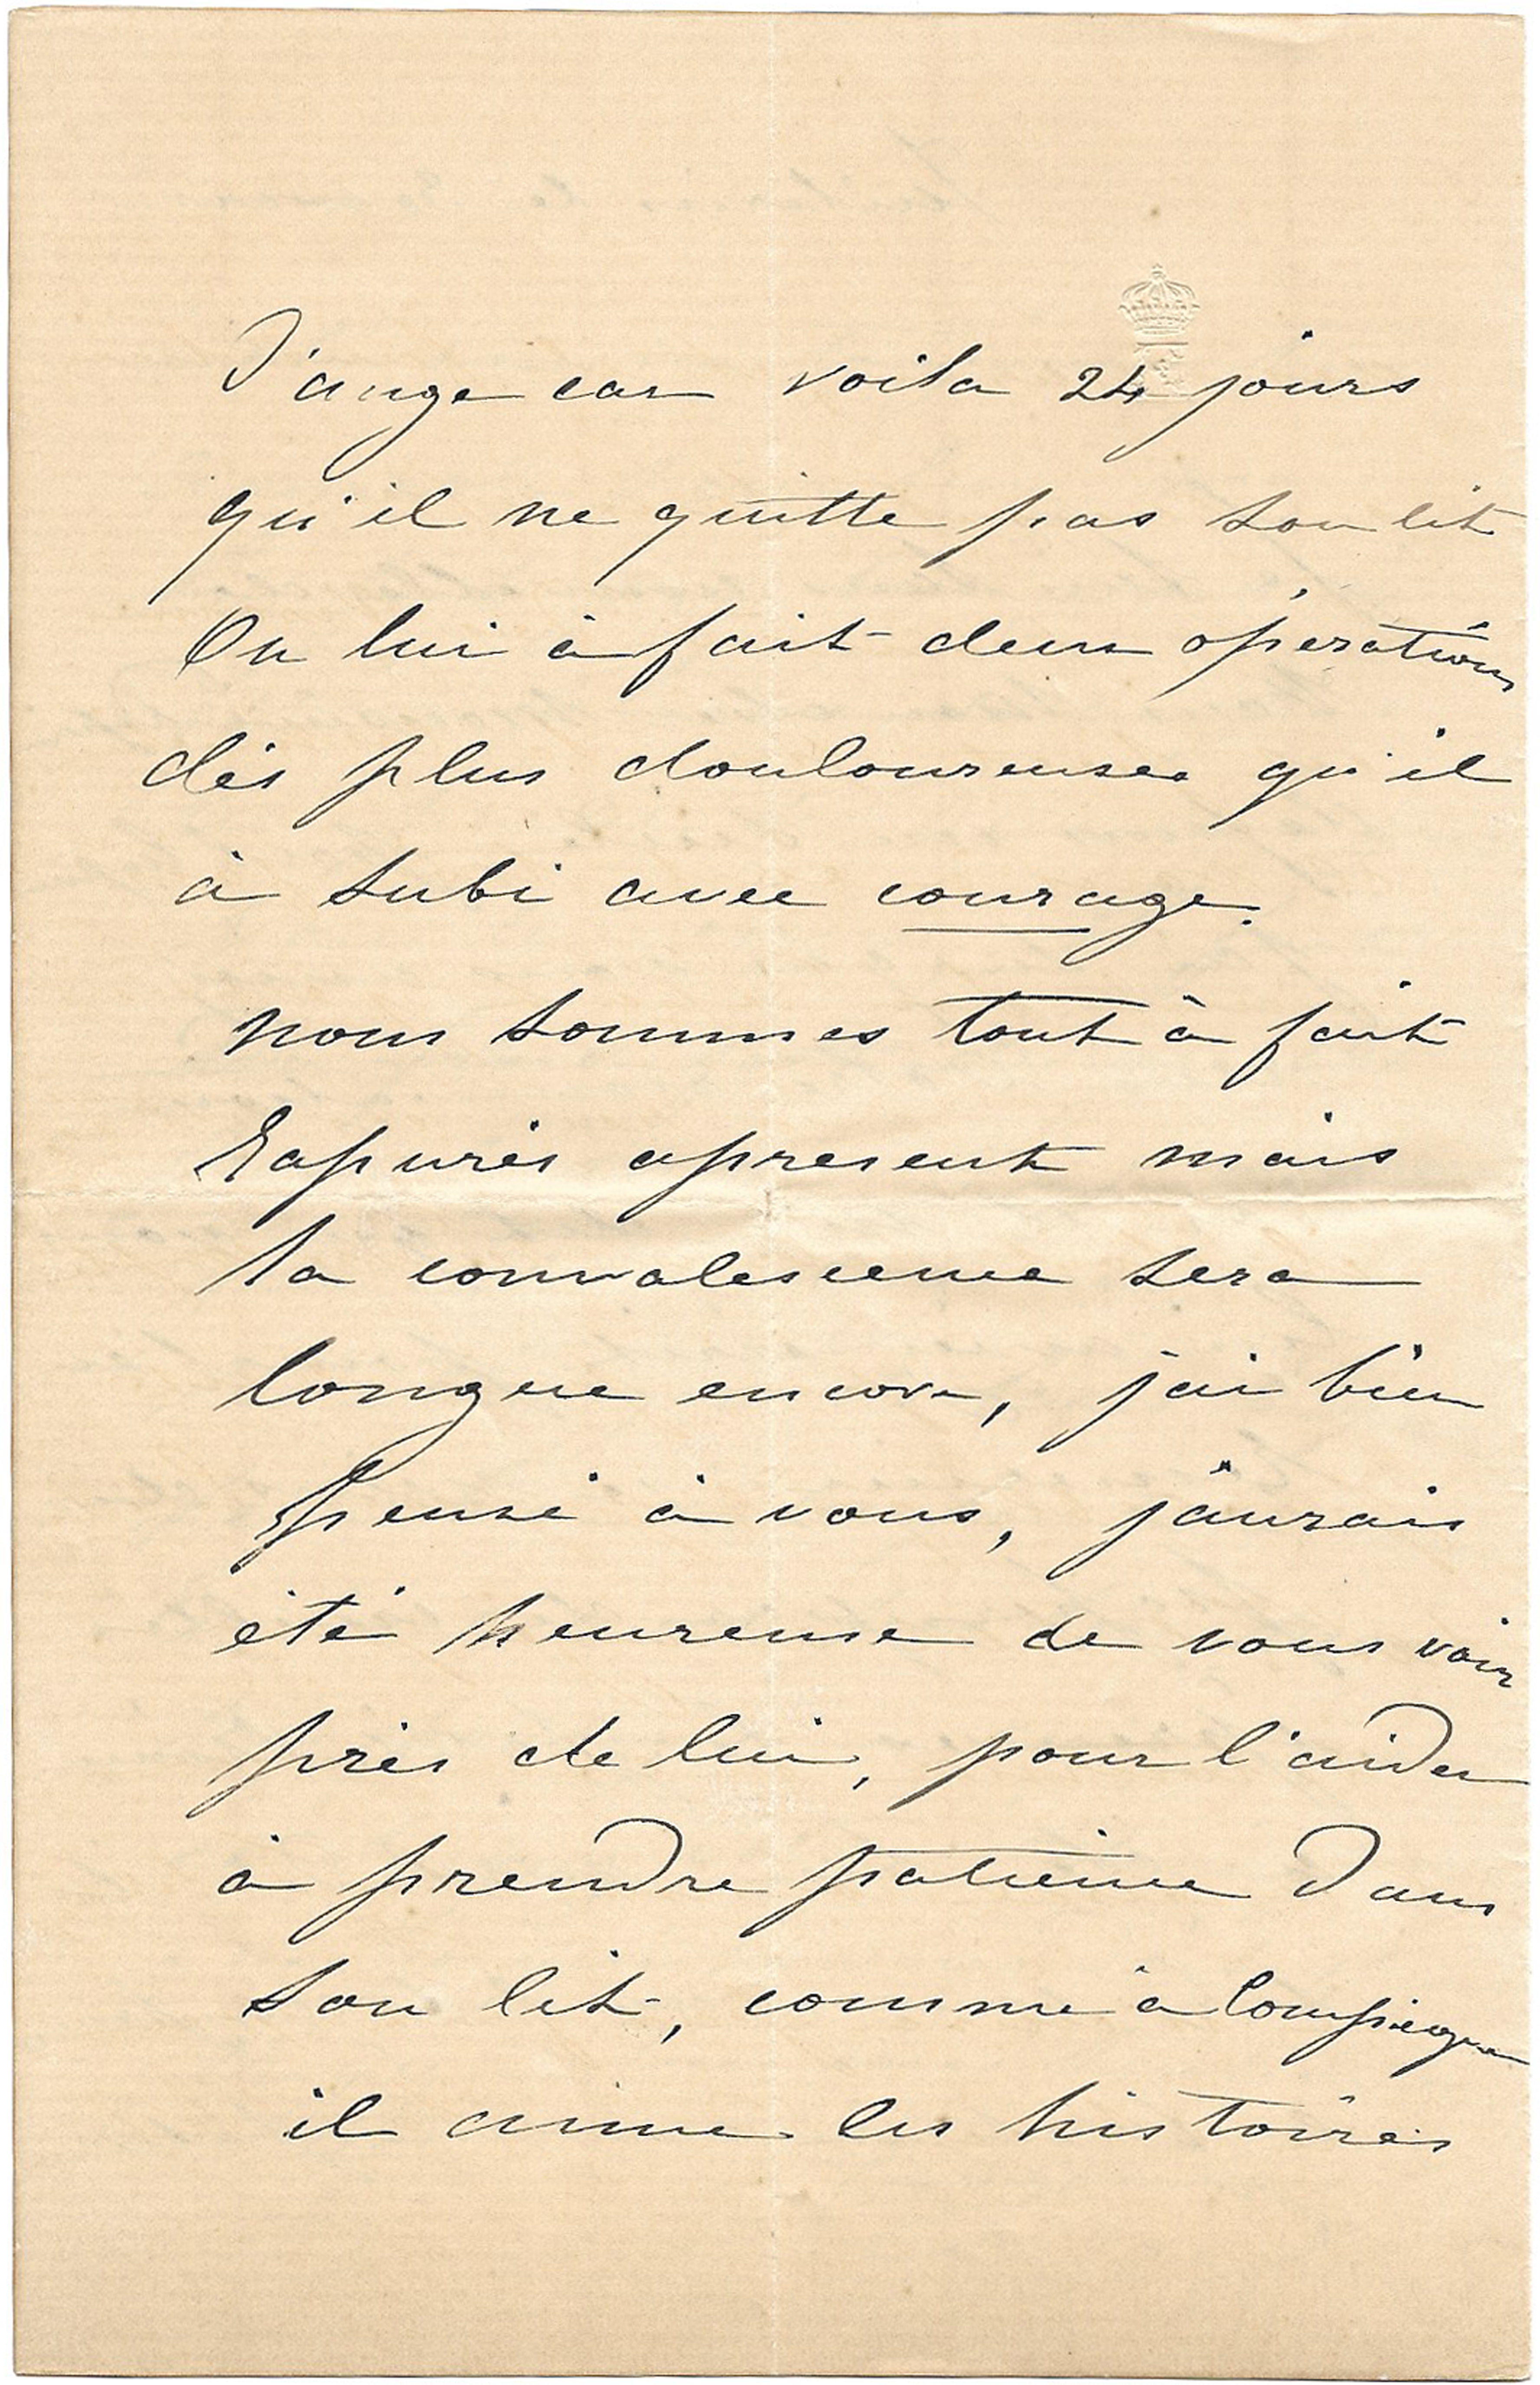 d'ange car voila 24 jours
qu'il ne quitte pas son lit
On lui à fait deux opérations
dés plus douloureuses qu'il
à subi avec courage.
nous sommes tout à fait
rassurés apresent mais
la convalescence sera
longue encore, j'ai bien
pensé à vous, j'aurais
été heureuse de vous voir
près de lui, pour l'aider
à prendre patience dans
son lit, comme à Compiègne
il aime les histoires